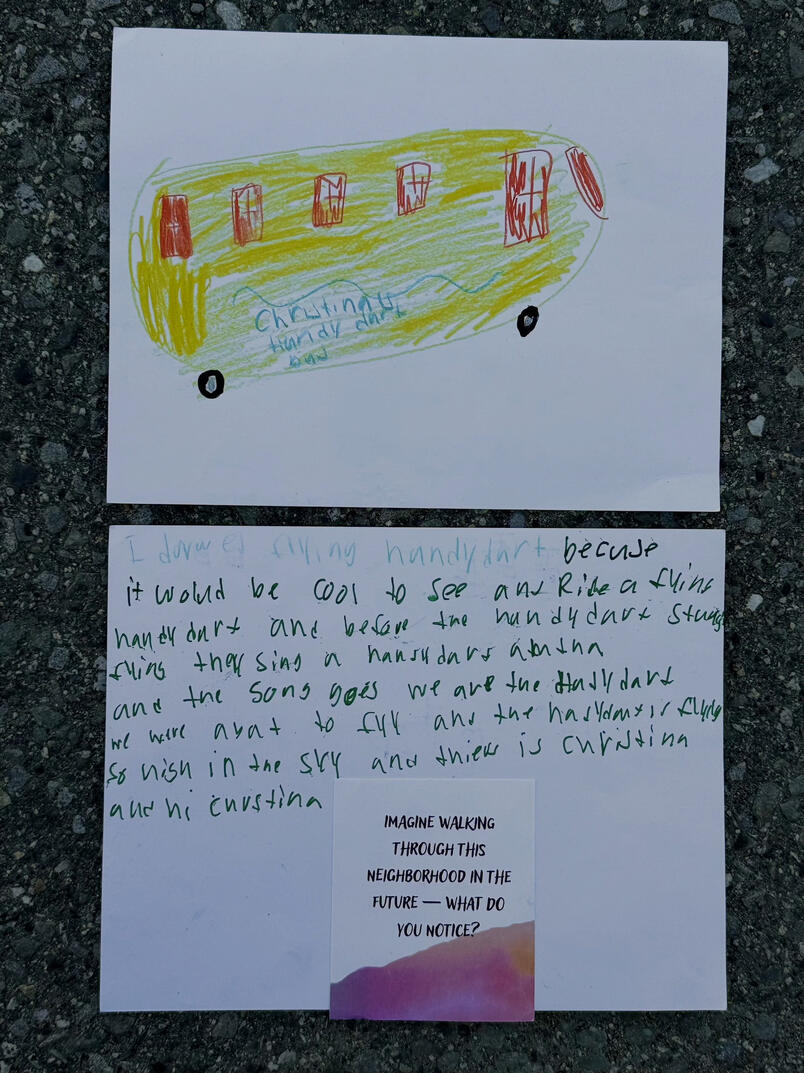 Christina
handy dart
bus
I a flying handydart becuse
it wolud be cool to see and Ride a flying
handy dart and before the handydart
flying they sing a handydart
and the song goes we are the dart
we to fly and the is flying
so high in the sky and is Christina
and hi Curstina
IMAGINE WALKING
THROUGH THIS
NEIGHBORHOOD IN THE
FUTURE — WHAT DO
YOU NOTICE?